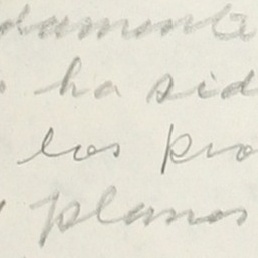 damente
ha sid
los pro
planos